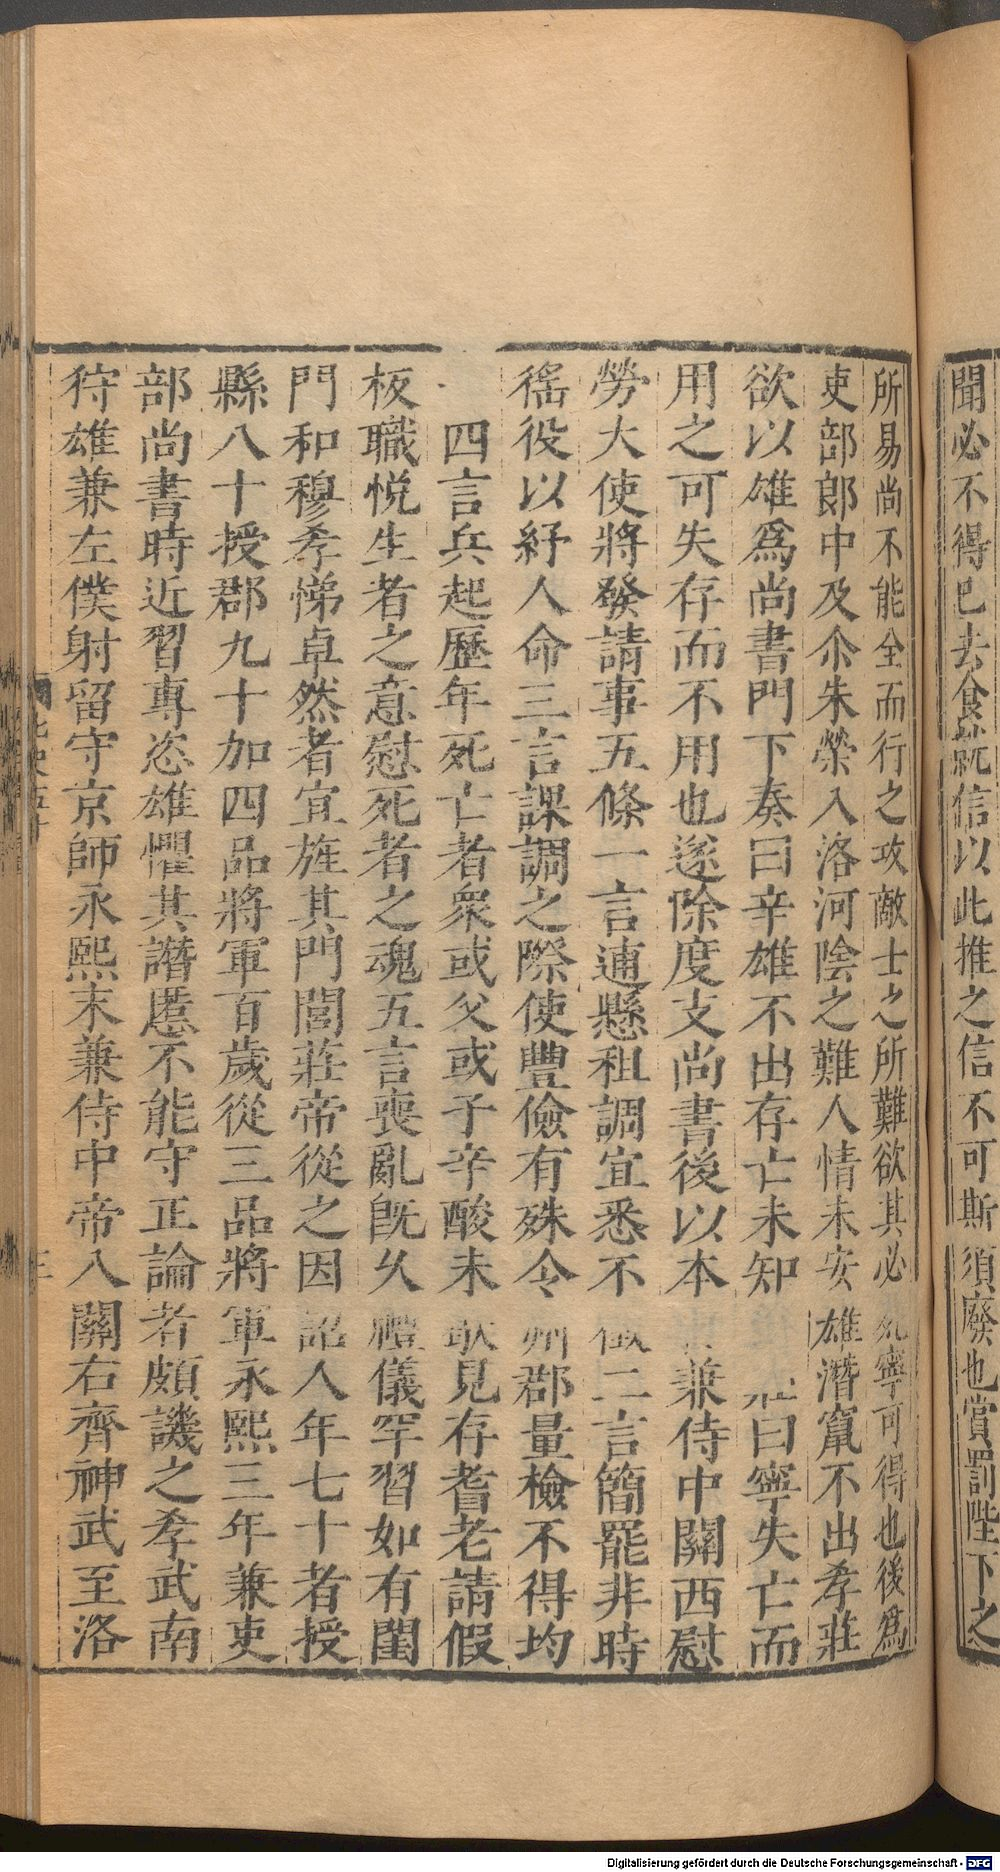 聞必不得已去食就信以此推之信不可斯須廢也賞罰陛下之
所易尚不能全而行之攻敵士之所難欲其必死寧可得也後爲
吏部郎中及尒朱榮入洛河陰之難人情未安雄潛竄不出孝莊
欲以雄爲尚書門下奏曰辛雄不出存亡未知 曰寧失亡而
用之可失存而不用也遂除度支尚書後以本 兼侍中關西慰
勞大使將發請事五條一言逋懸租調宜悉不 二言簡罷非時
徭役以紓人命三言課調之際使豐儉有殊令州郡量檢不得均
四言兵起歷年死亡者衆或父或子辛酸未歇見存耆老請假
板職悅生者之意慰死者之魂五言喪亂旣乆禮儀罕習如有閨
門和穆孝悌卓然者宜旌其門閭莊帝從之因詔人年七十者授
縣八十授郡九十加四品將軍百歲從三品將軍永熙三年兼吏
部尚書時近習專恣雄懼其譖慝不能守正論者頗譏之孝武南
狩雄兼左僕射留守京師永熙末兼侍中帝入關右齊神武至洛
Digitalisierung gefördert durch die Deutsche Forschungsgemeinschaft - DFG